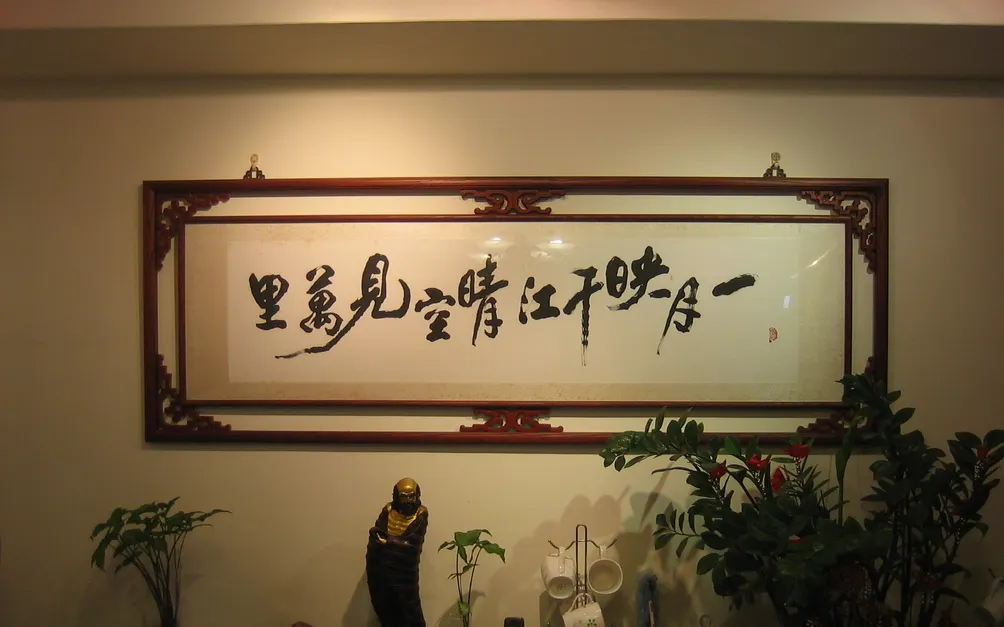 一月映千江晴空見萬里